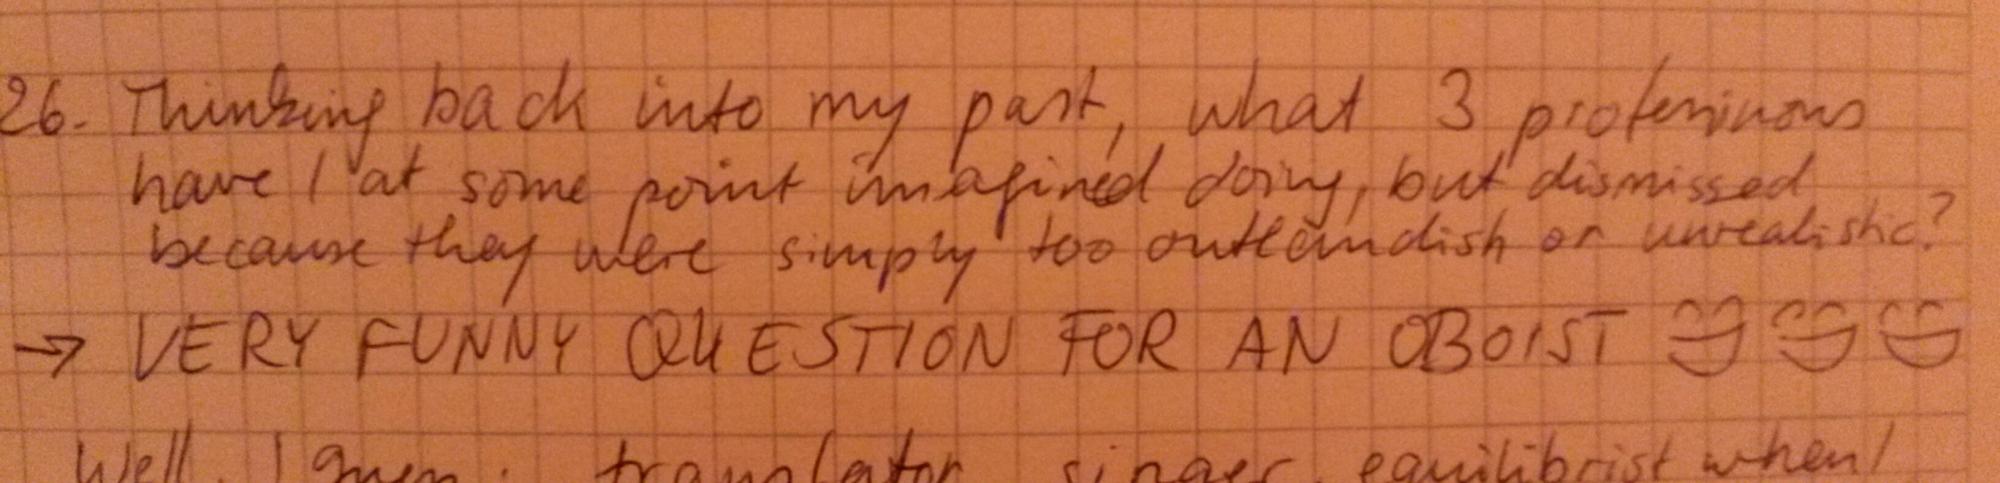 26. Thinking back into my past, what 3 professions
have I at some point imagined doing, but dismissed
because they were simply too outlandish or unrealistic?
→ VERY FUNNY QUESTION FOR AN OBOIST 😄 😄 😄
Well, I guess: translator, singer, equilibrist when I